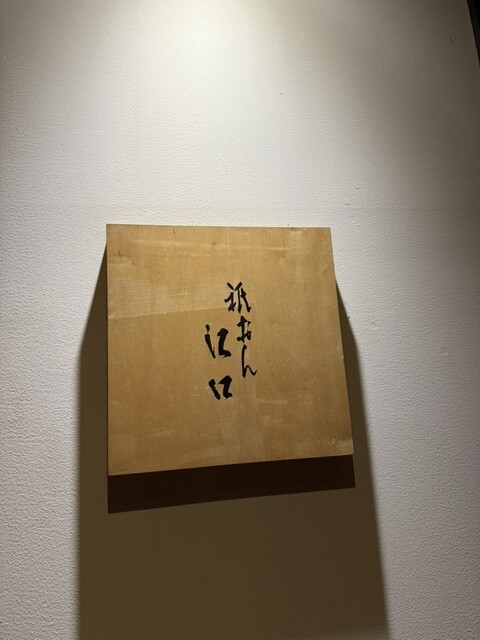 祇おん
江口